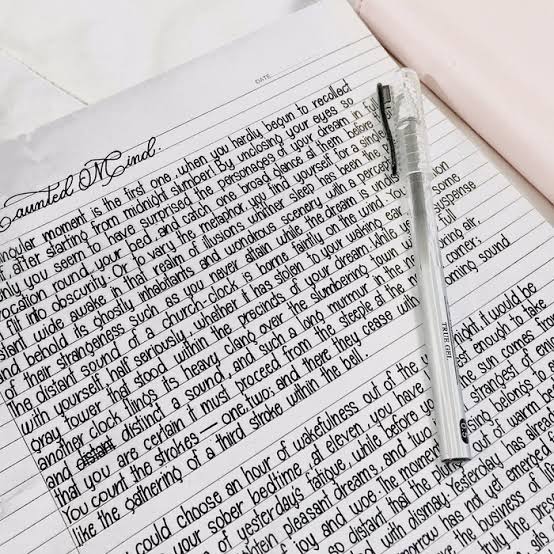 DATE
aunted Mind.
ingular moment is the first one, when you hardly begun to recollect
f, after starting from midnight slumber! By unclosing your eyes so
nly you seem to have surprised the personages of your dream in full
vocation round your bed, and catch one broad glance at them before
flit into obscurity. Or, to vary the metaphor, you find yourself for a single
stant wide awake in that realm of illusions, whither sleep has been the
and behold its ghostly inhabitants and wondrous scenery with a percep
of their strangeness such as you never attain while the dream is undis
The distant sound of a church-clock is borne faintly on the wind. You
with yourself, half seriously, whether it has stolen to your waking ear some
gray tower that stood within the precincts of your dream. While suspense
another clock flings its heavy clang over the slumbering town full
and distant distinct a sound, and such a long murmur in the ring air,
that you are certain it must proceed from the steeple at the corner;
You count the strokes—one, two; and there they cease with oming sound
like the gathering of a third stroke within the bell.
could choose an hour of wakefulness out of the night, it would be
your sober bedtime, at eleven, you have est enough to take
of yesterdays fatigue, while before you the sun comes
pleasant dreams, and two strangest of
joy and woe the moment belongs to
so distant, that the out of warm be
with dismay. Yesterday has alrea
orrow has not yet emerged
the business of
TRUE GEL